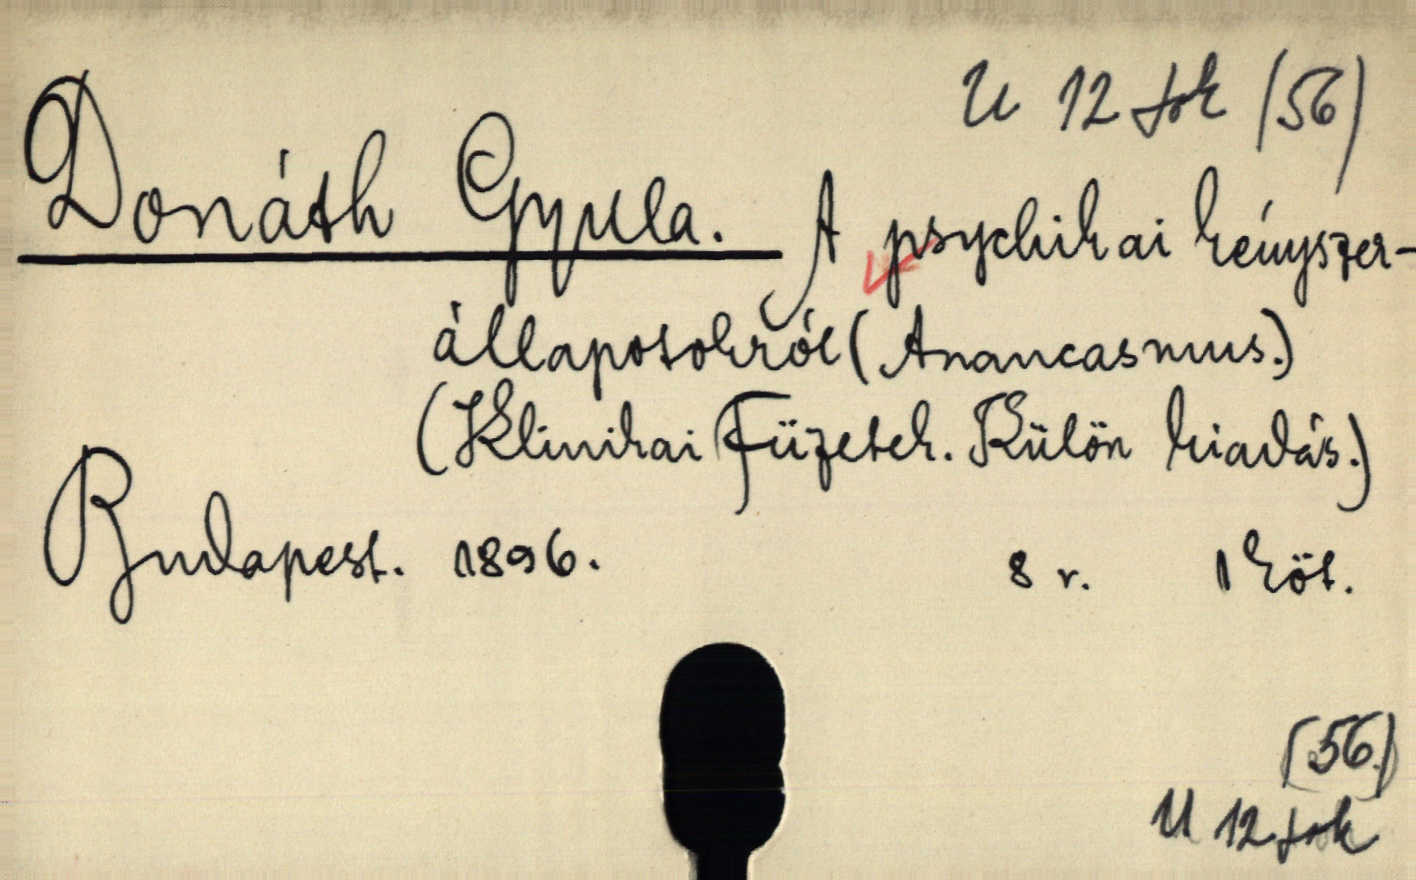 U 12 tok (56)
Donáth Gyula. A psychikai kényszer-
állapotokról (Anancasmus.)
(Klinikai Füzetek. Külön kiadás.)
Budapest. 1896. 8 r. 1 köt.
(56.)
U 12 tok